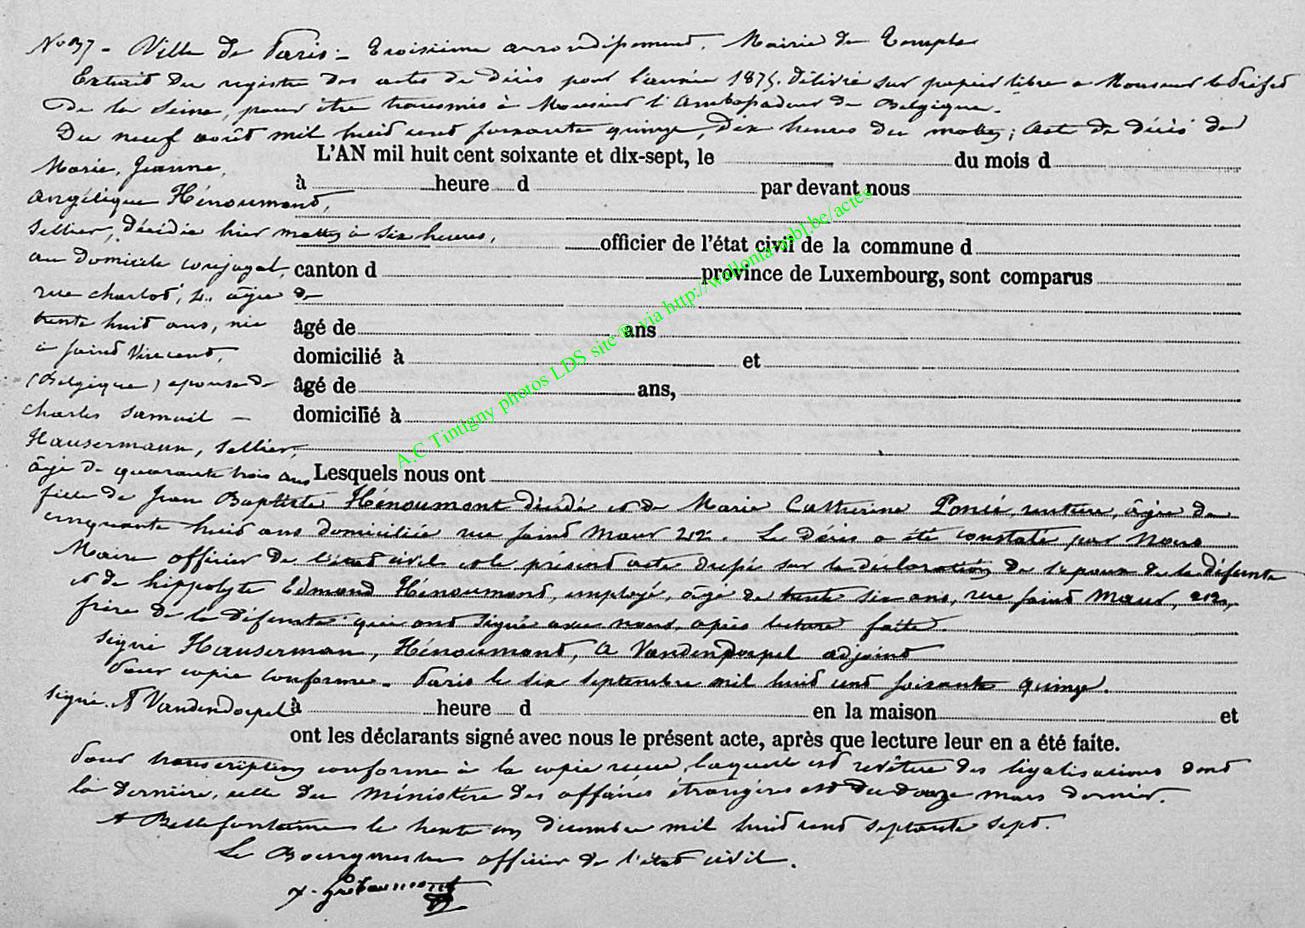 No 37 - Ville de Paris - Troisième arrondissement. Mairie du Temple
Extrait du registre des actes de décès pour l'année 1875. Délivré sur papier libre à Monsieur le Préfet
De la Seine, pour être transmis à Monsieur l'Ambassadeur de Belgique.
Du neuf août mil huit cent soixante quinze, Dix heures du matin; Acte de décès de
L'AN mil huit cent soixante et dix-sept, le du mois d
Marie, Jeanne,
à heure d par devant nous
Angélique Hénoumont,
sellier, Décédée hier matin à six heures,
officier de l'état civil de la commune d
au domicile conjugal,
canton d province de Luxembourg, sont comparus
rue charlot, 4. âgée de
trente huit ans, née
âgé de ans
à saint Vincent,
domicilié à et
(Belgique) épouse de
âgé de ans,
charles samuel -
domicilié à
Hausermann, sellier,
âgé de quarante trois ans
Lesquels nous ont
fille de Jean Baptiste Hénoumont décédé et de Marie Catherine Poncé, rentière, âgée de
cinquante huit ans domiciliée rue saint Maur 212. Le décès a été constaté par Nous
Maire officier de l'état civil et le présent acte dressé sur la déclaration de l'époux de la défunte
et de hippolyte Edmond Hénoumont, employé, âgé de trente six ans, rue saint Maur, 212,
frère de la défunte qui ont signé avec nous, après lecture faite.
signé Hauserman, Hénoumont, A Vandendorpel adjoint
Pour copie conforme. Paris le six septembre mil huit cent soixante quinze.
signé. A Vandendorpel
à heure d en la maison et
ont les déclarants signé avec nous le présent acte, après que lecture leur en a été faite.
Pour transcription conforme à la copie reçue, laquelle est revêtue des légalisations dont
la dernière, celle du Ministère des affaires étrangères est du douze mars dernier.
A Bellefontaine le trente un décembre mil huit cent septante sept.
Le Bourgmestre officier de l'état civil.
A.C Tintigny photos LDS site © via http://wallonia.mbl.be/actes